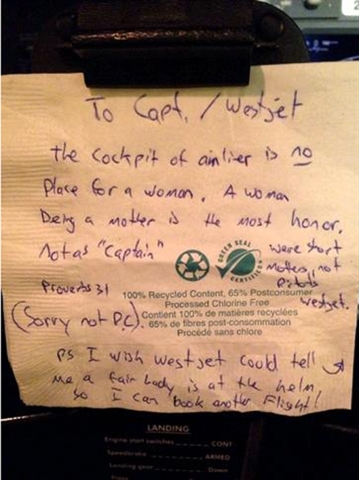 To Capt. / WestJet
the cockpit of airliner is no
Place for a woman. A woman
being a mother is the most honor.
Not as "Captain"
were short
mothers, not
pilots
westjet.
Proverbs 31
(Sorry not P.C.)
GREEN SEAL
CERTIFIED
100% Recycled Content, 65% Postconsumer
Processed Chlorine Free
Contient 100% de matières recyclées
65% de fibres post-consommation
Procédé sans chlore
PS I wish Westjet could tell
me a fair lady is at the helm
so I can book another Flight!
LANDING
Engine start switches CONT
Speedbrake ARMED
Landing gear Down